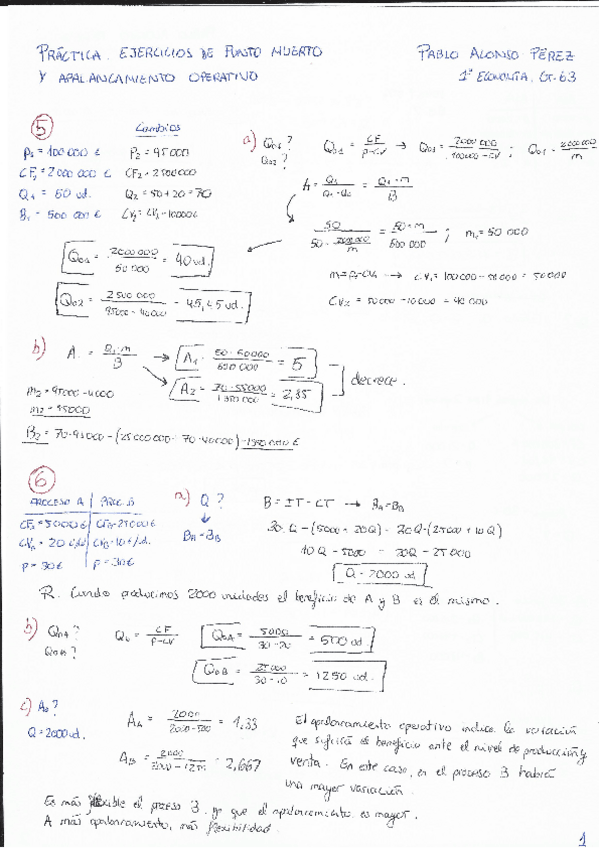 PRÁCTICA. EJERCICIOS DE PUNTO MUERTO
Y APALANCAMIENTO OPERATIVO
PABLO ALONSO PÉREZ
1º ECONOMÍA, GT-63
5
Cambios
P1 = 100 000 € P2 = 95000
CF1 = 2000 000 € CF2 = 2500000
Q1 = 50 ud. Q2 = 50+20 = 70
B1 = 500 000 € CV2 = CV1 - 10000€
a) Q01? Q02?
Q01 = CF / P-CV → Q01 = 2000 000 / 100000 - CV ; Q01 = 2000000 / m
A = Q1 / Q1 - Q0 = Q1 · m / B
50 / 50 - 2000000/m = 50 · m / 500 000 ; m1 = 50 000
Q01 = 2000 000 / 50 000 = 40 ud.
Q02 = 2 500 000 / 95000 - 40000 = 45,45 ud.
m = P1 - CV1 → CV1 = 100000 - 50000 = 50000
CV2 = 50000 - 10000 = 40 000
b) A = Q1 · m / B → A1 = 50 · 50000 / 500 000 = 5
A2 = 70 · 55000 / 1350 000 = 2,85
decrece.
m2 = 95000 - 4000
m2 = 55000
B2 = 70 · 95000 - (2500000 + 70 · 40000) = 1350 000 €
6
PROCESO A | PROC. B
CFA = 5000 € CFB = 25000 €
CVA = 20 €/ud CVB = 10 €/ud.
P = 30 € P = 30 €
a) Q?
↓
BA = BB
B = IT - CT → BA = BB
30 Q - (5000 + 20Q) = 30Q - (25000 + 10 Q)
10 Q - 5000 = 20Q - 25 000
Q = 2000 ud
R. Cuando producimos 2000 unidades el beneficio de A y B es el mismo.
b) Q0A? Q0B?
Q0 = CF / P-CV
Q0A = 5000 / 30 - 20 = 500 ud.
Q0B = 25000 / 30 - 10 = 1250 ud.
c) A0?
Q = 2000 ud.
AA = 2000 / 2000 - 500 = 1,33
AB = 2000 / 2000 - 1250 = 2,667
El apalancamiento operativo indica la variación
que sufrirá el beneficio ante el nivel de producción y
venta. En este caso, en el proceso B habrá
una mayor variación.
Es más flexible el proceso B, ya que el apalancamiento es mayor.
A más apalancamiento, más flexibilidad.
1